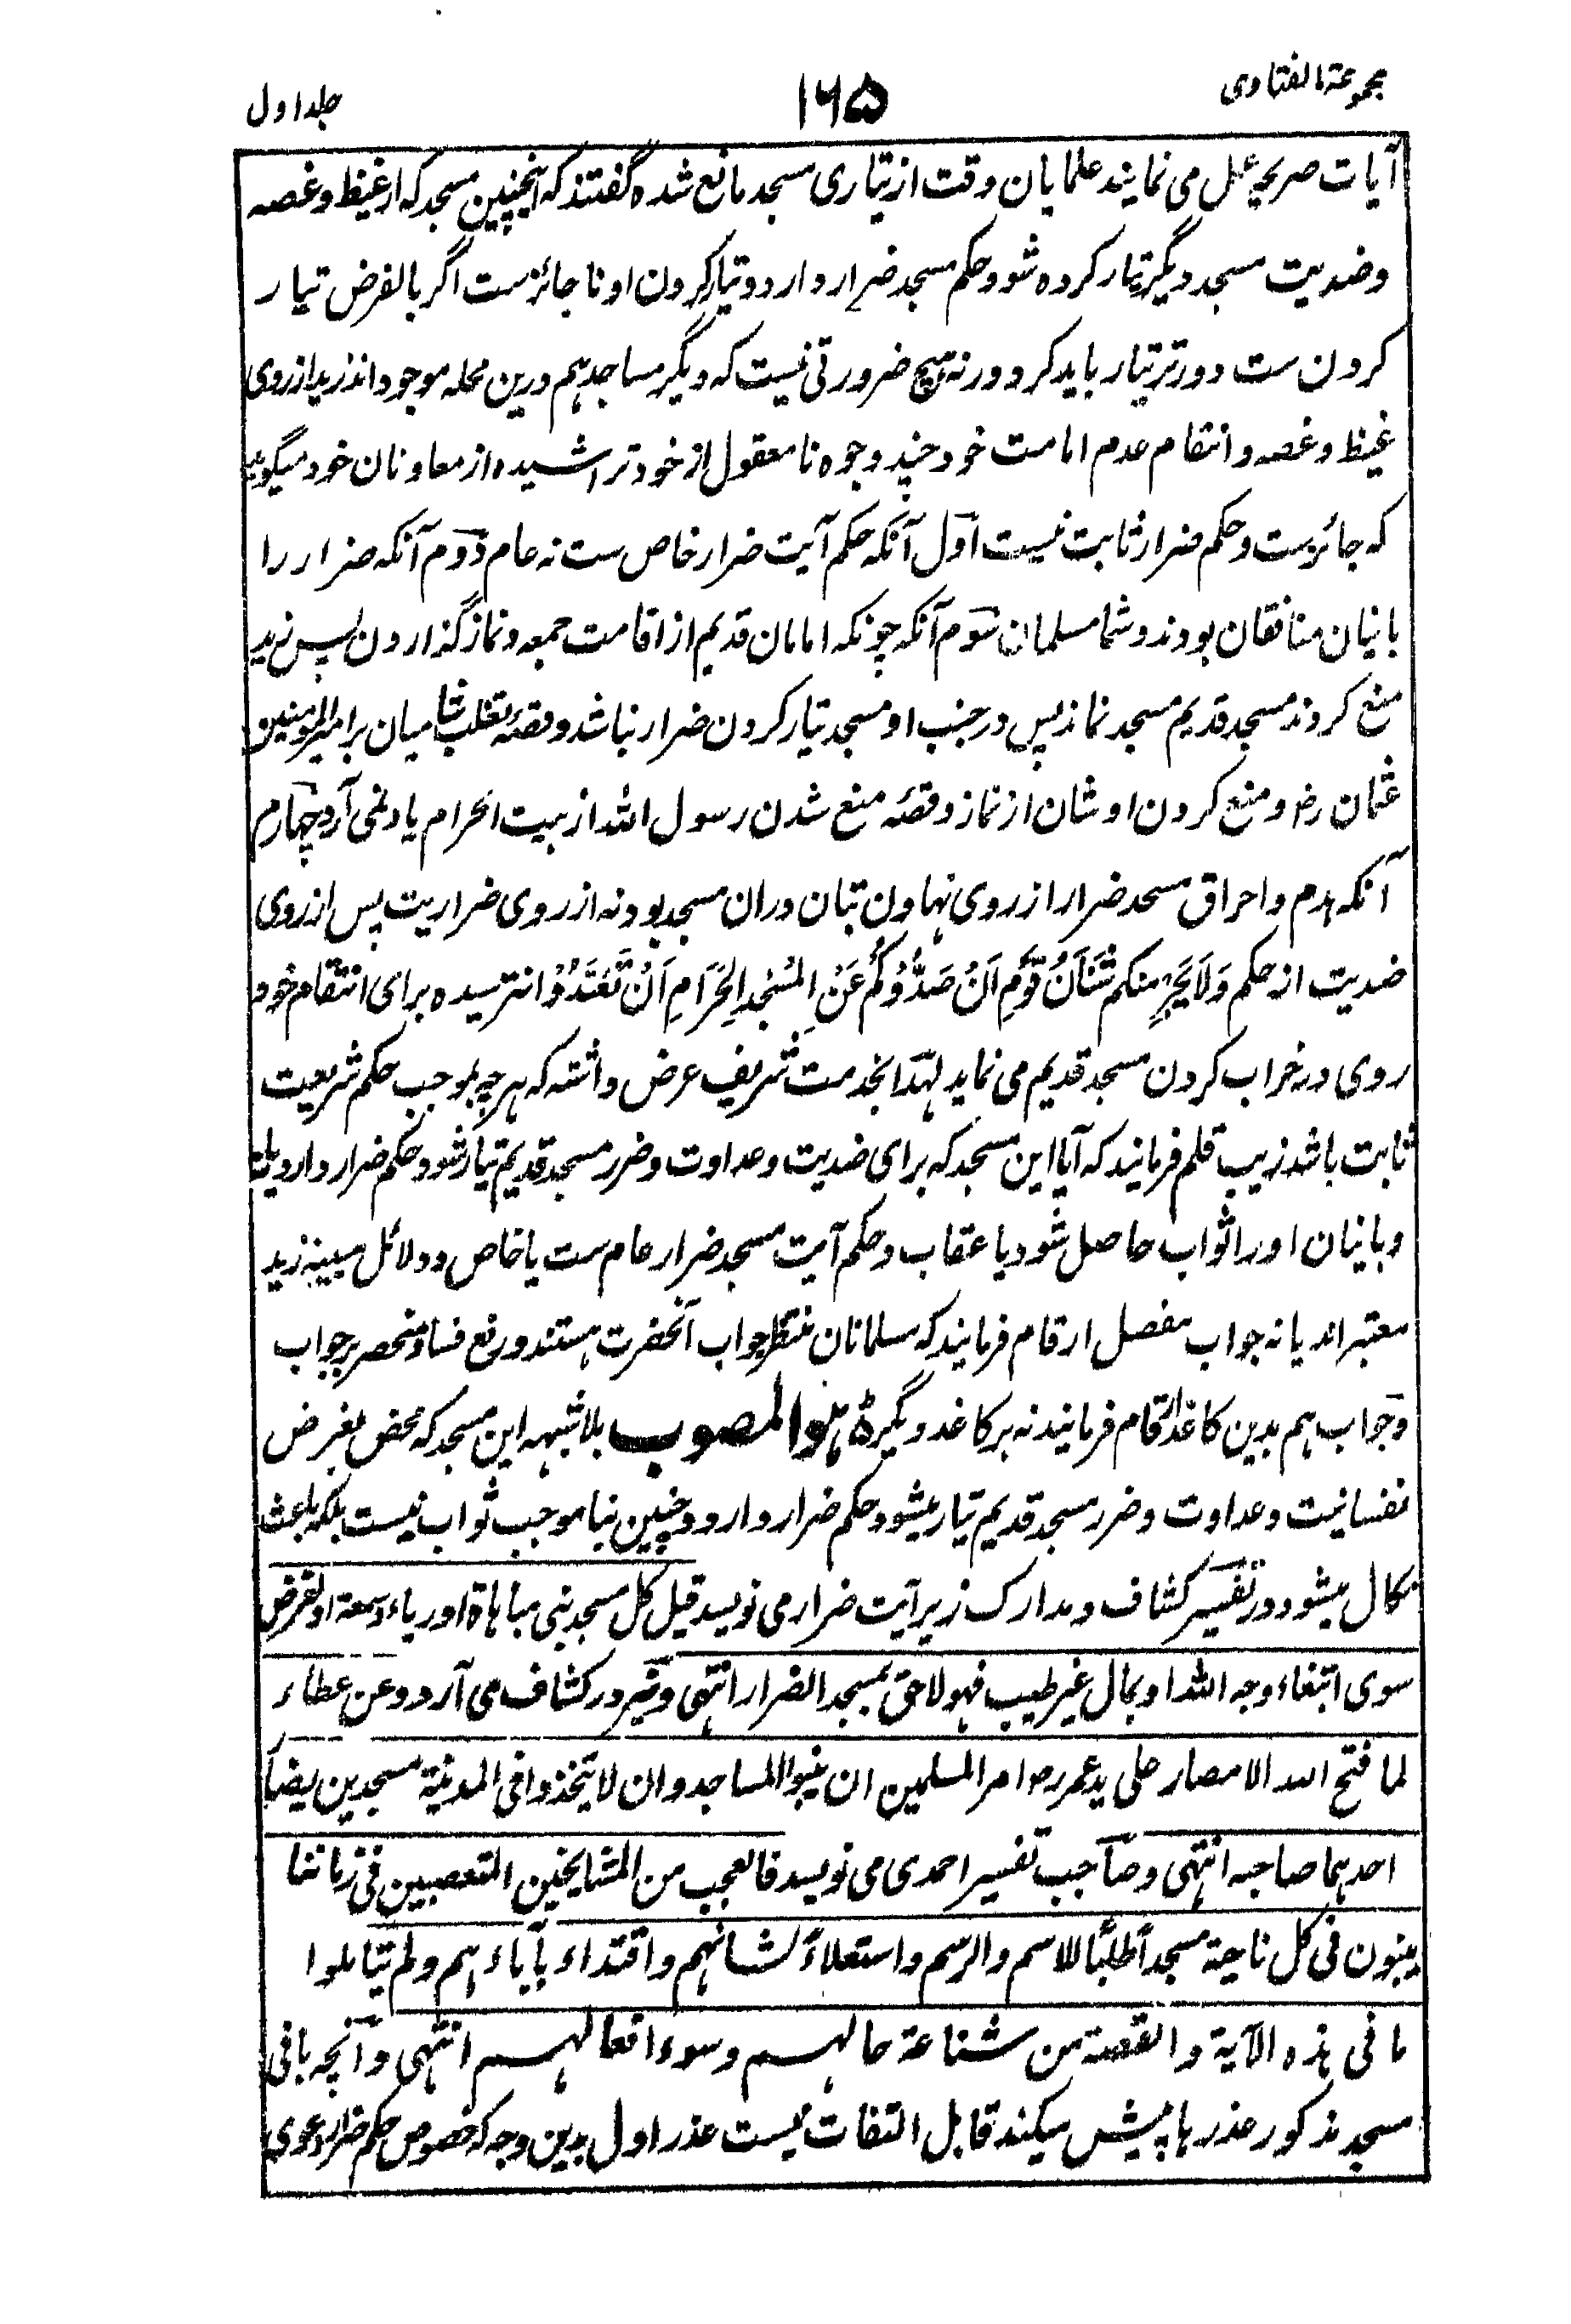 مجموعة الفتاوی
۱۶۵
جلد اول
آیات صریحه عمل می نمایند علمایان وقت از تیاری مسجد مانع شده گفتند که اینچنین مسجد که از غیظ و غصه
و ضدیت مسجد دیگر تیار کرده شود حکم مسجد ضرار دارد و تیار کردن او ناجائزست اگر بالفرض تیار
کردن ست دورتر تیار باید کرد ورنه هیچ ضرورتی نیست که دیگر مساجد هم درین محله موجود اند زید از روی
غیظ و غصه و انتقام عدم امامت خود چند وجوه نامعقول از خود تراشیده از معاونان خود میگوید
که جائزست و حکم ضرار ثابت نیست اول آنکه حکم آیت ضرار خاص ست نه عام دوم آنکه ضرار را
بانیان منافقان بودند و شما مسلمان سوم آنکه چونکه امامان قدیم از اقامت جمعه و نماز گذاردن پس زید
منع کردند مسجد قدیم مسجد نماند پس در جنب او مسجد تیار کردن ضرار نباشد و قصّه تغلب شامیان بر امیر المومنین
عثمان رضـ و منع کردن اوشان از نماز و قصّه منع شدن رسول الله از بیت الحرام یاد نمی آرد چهارم
آنکه هدم و احراق مسجد ضرار از روی نهادن بتان دران مسجد بود نه از روی ضراریت پس از روی
ضدیت از حکم وَلَا یَجْرِمَنَّکُم شَنَاٰنُ قَوْمٍ اَنْ صَدُّوْکُمْ عَنِ الْمَسْجِدِ الْحَرَامِ اَنْ تَعْتَدُوْا نترسیده برای انتقام خود
روی در خراب کردن مسجد قدیم می نماید لهذا بخدمت شریف عرض داشته که هر چه بموجب حکم شریعت
ثابت باشد زیب قلم فرمایند که آیا این مسجد که برای ضدیت و عداوت و ضرر مسجد قدیم تیار شود حکم ضرار دارد یا نه
و بانیان او را ثواب حاصل شود یا عقاب و حکم آیت مسجد ضرار عام ست یا خاص و دلائل مبینه زید
معتبر اند یا نه جواب مفصل ارقام فرمایند که مسلمانان منتظر جواب آنحضرت هستند و رفع فساد منحصر بر جواب
و جواب هم بدین کاغذ ارقام فرمایند نه بر کاغذ دیگر هو المصوب بلا شبهه این مسجد که محض بغرض
نفسانیت و عداوت و ضرر مسجد قدیم تیار میشود حکم ضرار دارد و چنین بنا موجب ثواب نیست بلکه باعث
نکال میشود و در تفسیر کشاف و مدارک زیر آیت ضرار می نویسد قیل کل مسجد بنی مباهاة او ریاء و سمعة او لغرض
سوی ابتغاء وجه الله او بمال غیر طیب فهو لاحق بمسجد الضرار انتهی و نیز در کشاف می آرد و عن عطاء
لما فتح الله الامصار علی ید عمر رضـ امر المسلمین ان یبنوا المساجد و ان لا یتخذوا فی المدینة مسجدین یضار
احدهما صاحبه انتهی و صاحب تفسیر احمدی می نویسد فالعجب من المشایخین المتعصبین فی زماننا
یبنون فی کل ناحیة مسجدًا طلبًا للاسم و الرسم و استعلاءً لشانهم و اقتداء بآباءهم و لم یتاملوا
ما فی هذه الآیة و القصة من شناعة حالهم و سوء افعالهم انتهی و آنچه بانی
مسجد مذکور عذرها پیش میکند قابل التفات نیست عذر اول بدین وجه که خصوص حکم ضرار دعوی